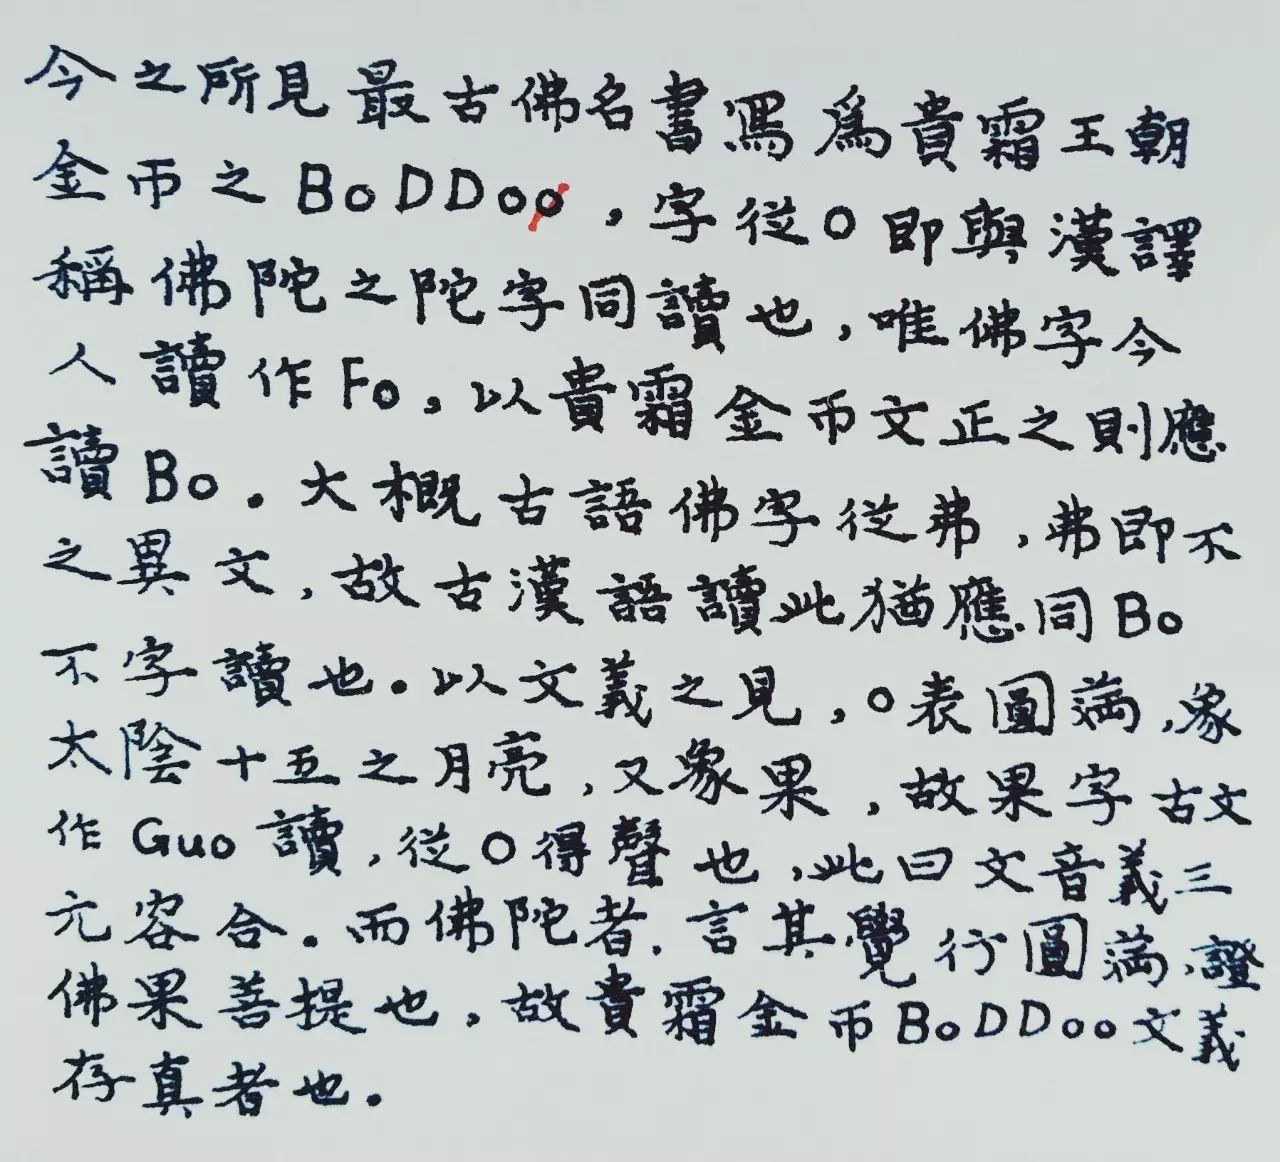 今之所見最古佛名書寫爲貴霜王朝
金币之BoDDoo，字從O即與漢譯
稱佛陀之陀字同讀也，唯佛字今
人讀作Fo，以貴霜金币文正之則應
讀Bo。大概古語佛字從弗，弗即不
之異文，故古漢語讀此猶應同Bo
不字讀也。以文義之見，O表圓滿，象
太陰十五之月亮，又象果，故果字古文
作Guo讀，從O得聲也，此曰文音義三
元容合。而佛陀者，言其覺行圓滿，證
佛果菩提也，故貴霜金币BoDDoo文義
存真者也。